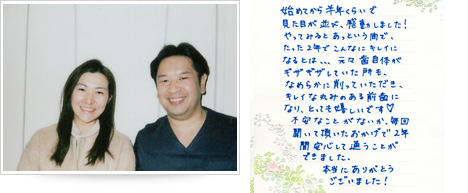 始めてから半年くらいで
見た目が並び、感動しました!
やってみるとあっという間で、
たった2年でこんなにキレイに
なるとは、、、元々歯自体が
ギザギザしていた所も、
なめらかに削っていただき、
キレイな丸みのある前歯に
なり、とっても嬉しいです♡
不安なことがないか、毎回
聞いて頂いたおかげで2年
間安心して通うことが
できました。
本当にありがとう
ございました!